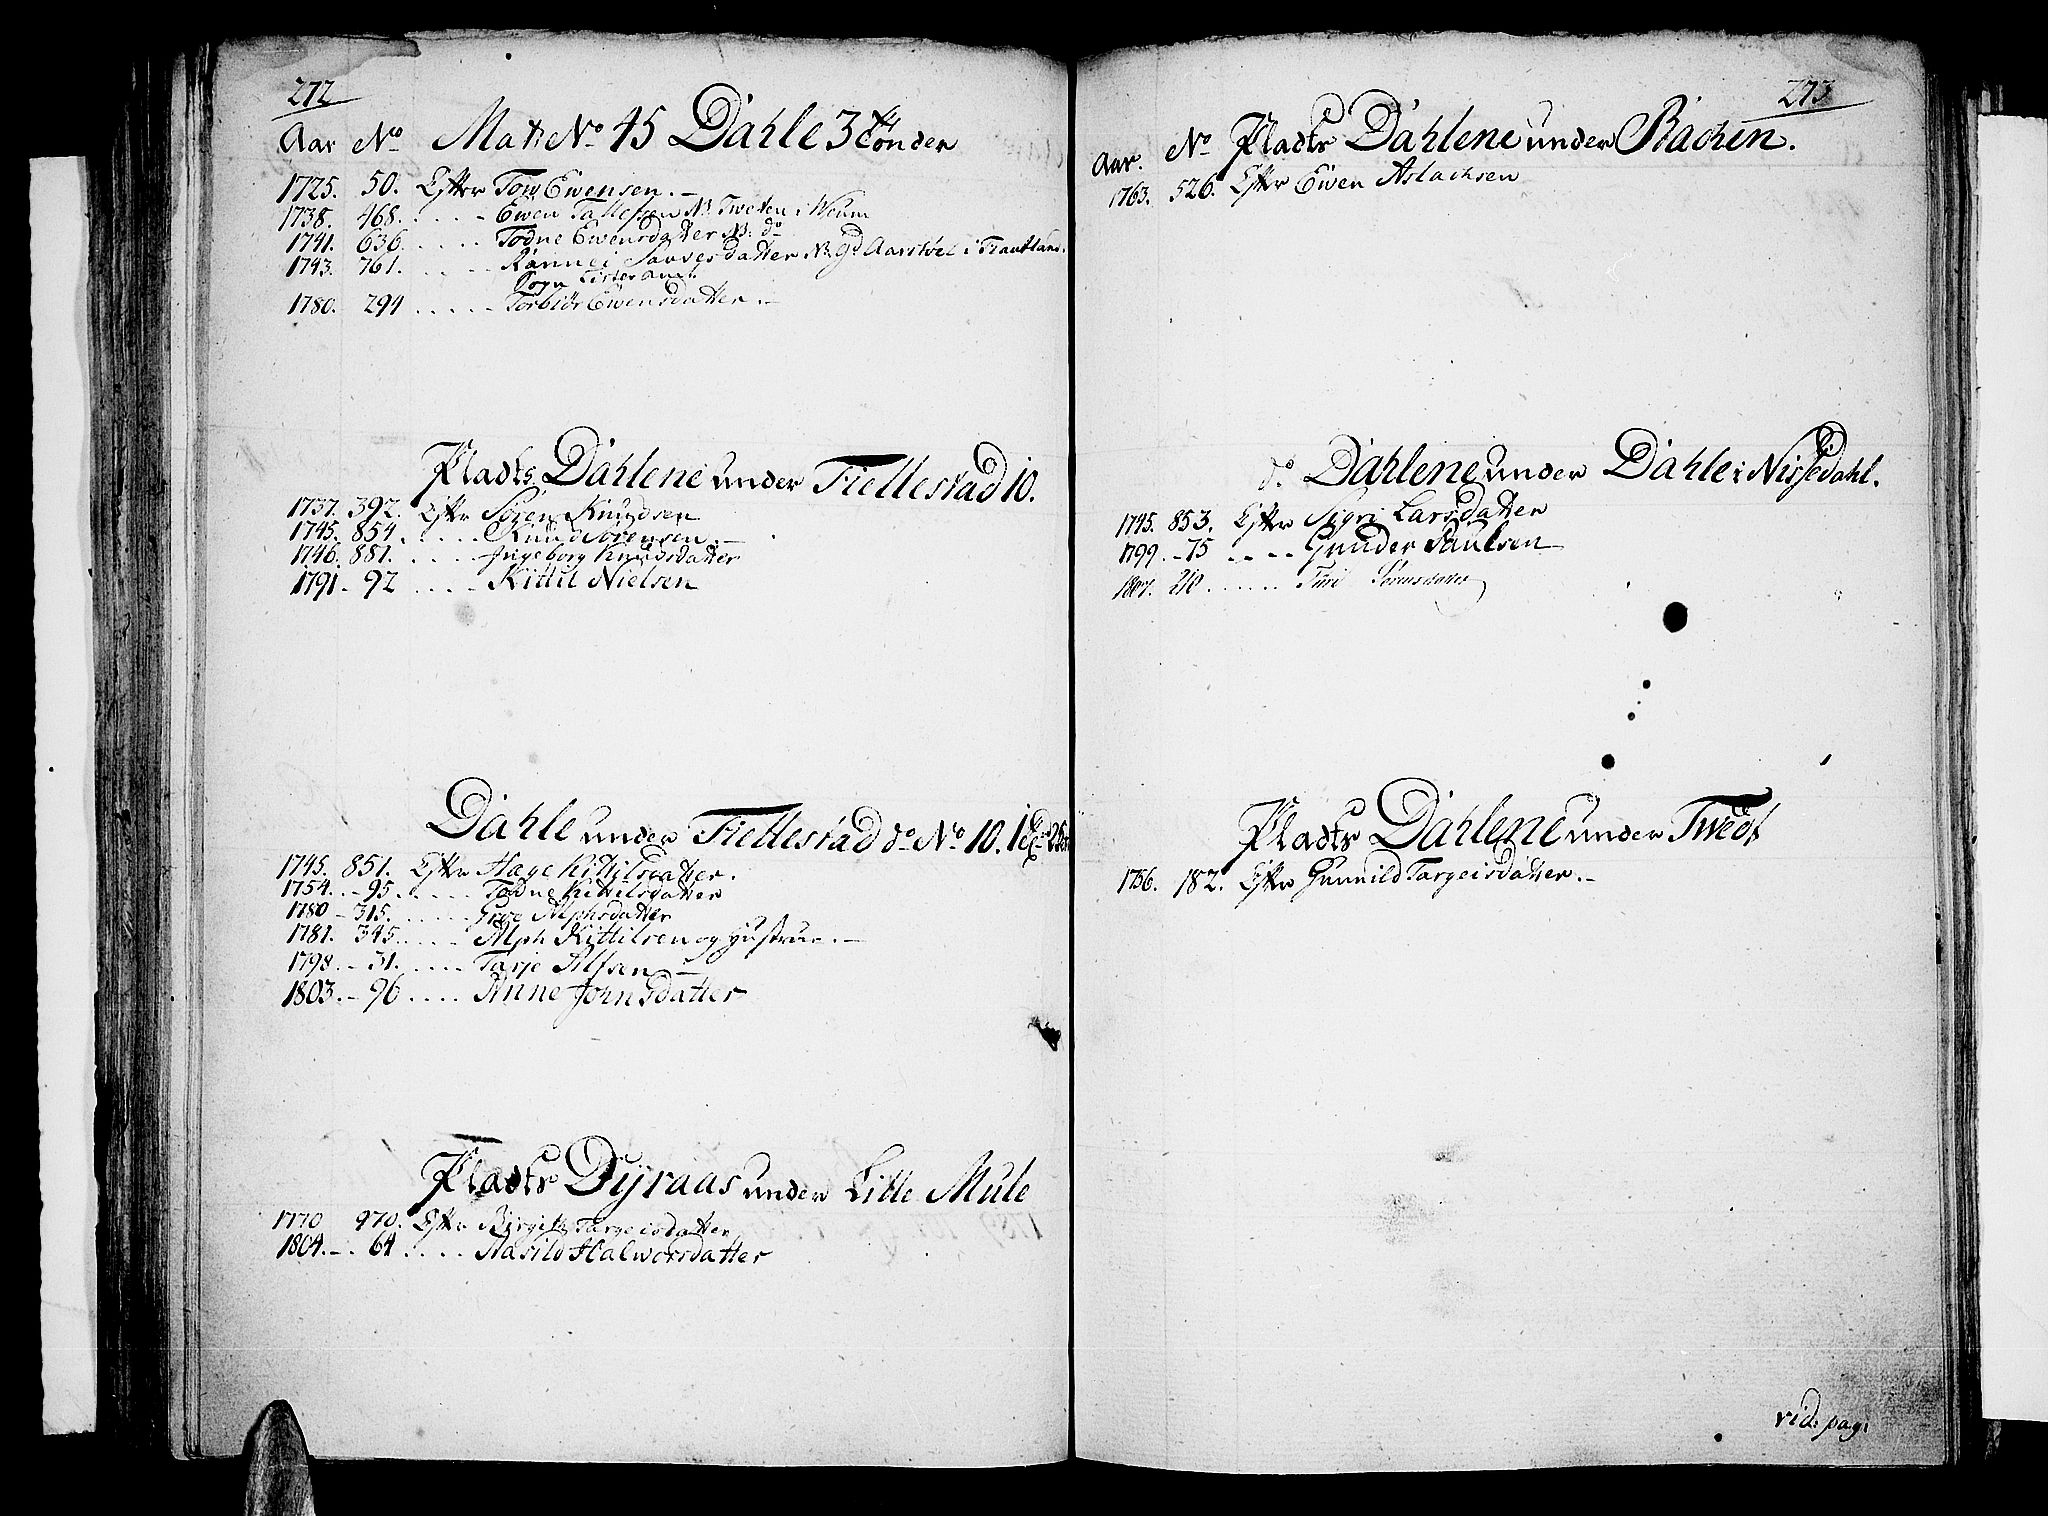 272
Aar No Matr No 45 Dahle 3 tönder
1725. 50. Efter Tow Ewensen. —
1738. 468. . . . . . Ewen Tallefsen N: Tweten i Weum
1741. 636. . . . . . Todne Ewensdatter N: do
1743. 761. . . . . . Rannei Sawesdatter N: Gd Aarstöel i
Sogn Lister amt.
1780. 294 . . . . . Torbiör Ewensdatter. —
Pladts Dahlene under Fiellestad 10.
1737. 392. Efter Sören Knudsen
1745. 854. . . . . . Knud Sörensen. —
1746. 881. . . . . . Ingeborg Knudsdatter
1791 - 92 . . . . Kittil Nielsen
Dahle under Fiellestad do No 10.
1745. 851. Efter Hæge Kittilsdatter.
1754. - 95. . . . . . Todne Kittilsdatter
1780 - 315. . . . . . Groe Alphsdatter
1781. 345. . . . . Alph Kittilsen og Hustrue. —
1798. - 31. . . . . Tarje Alfsen —
1803. - 96 . . . . Anne Johnsdatter
Pladts Dyraas under Litle Mule
1770 970. Efter Birgitte Targeisdatter
1804. - 64 . . . . Aasild Halworsdatter
273
Aar. No Pladts Dahlene under Bachen.
1763. 526. Efter Ewen Aslachsen
do Dahlene under Dahle i Nissedahl.
1745. 853. Efter Sigri Larsdatter
1799. - 75 . . . . Gunder Paulsen
1807. 210 . . . . . . Turi
Pladts Dahlene under Twedt
1756. 182. Efter Gunnild Targeisdatter. —
vid: pag: